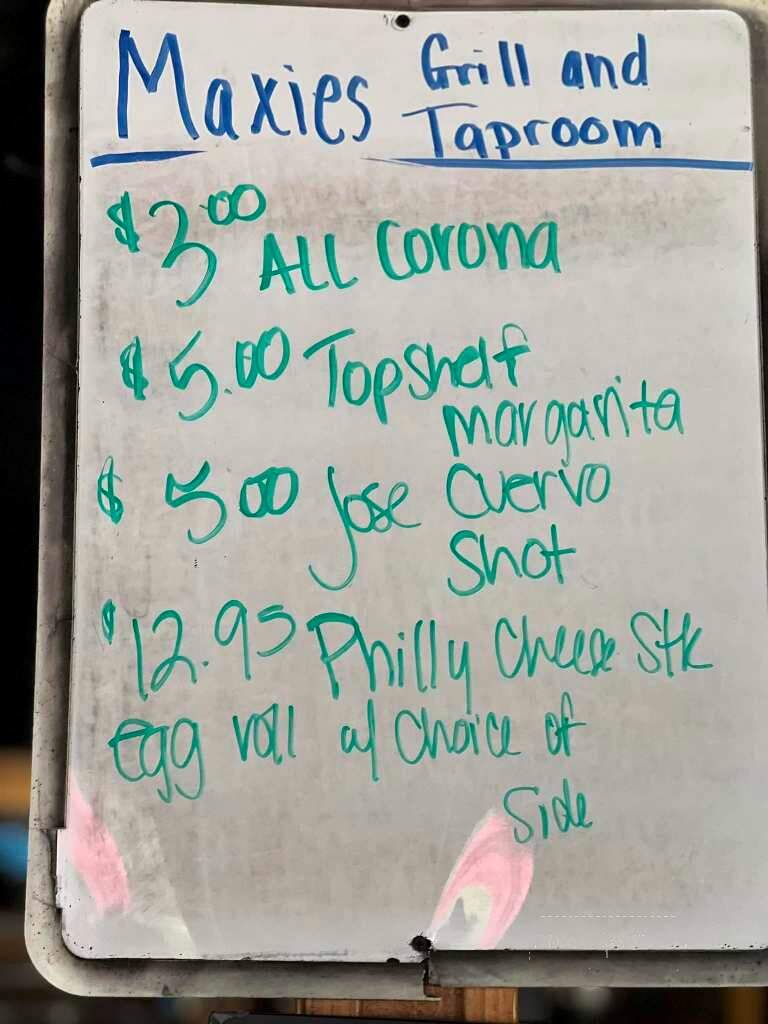 Maxies Grill and
Taproom
$3.00 All Corona
$5.00 Top Shelf
margarita
$5.00 Jose Cuervo
Shot
$12.95 Philly Cheese Stk
egg roll w/ Choice of
Side